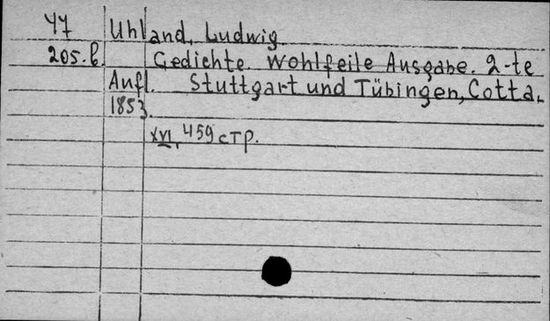 УУ Uhland, Ludwig
205.b. Gedichte. Wohlfeile Ausgabe. 2-te
Aufl. Stuttgart und Tübingen, Cotta.
1853.
XVI, 459 стр.